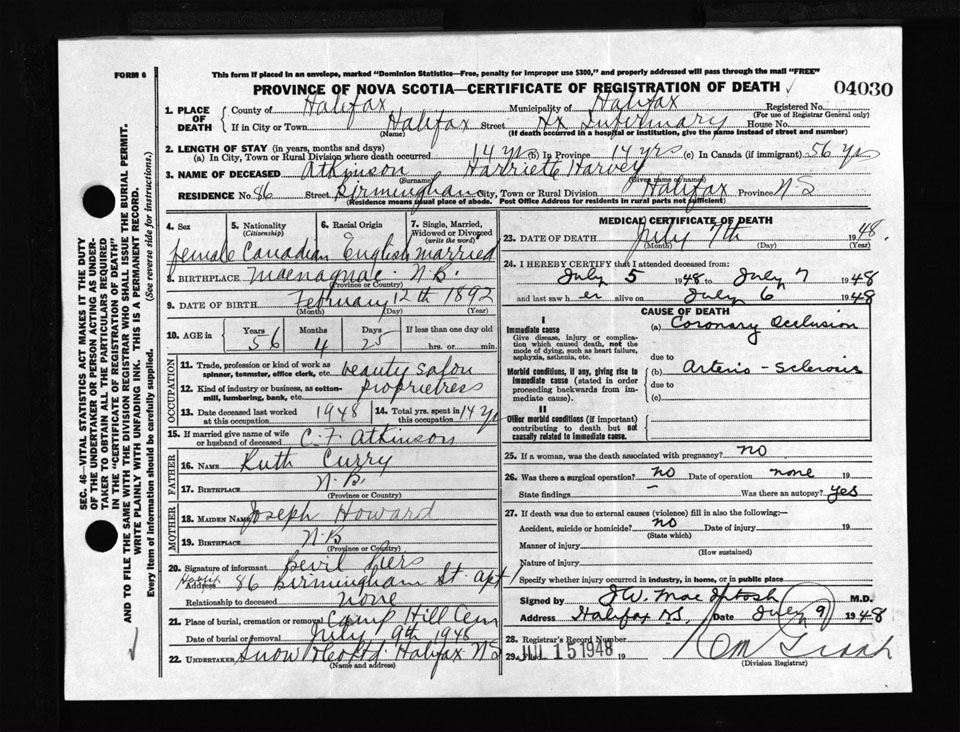 FORM 6
This form if placed in an envelope, marked "Dominion Statistics—Free, penalty for improper use $300," and properly addressed will pass through the mail "FREE"
PROVINCE OF NOVA SCOTIA—CERTIFICATE OF REGISTRATION OF DEATH
04030
1. PLACE OF DEATH
County of Halifax Municipality of Halifax Registered No.
(For use of Registrar General only)
If in City or Town Halifax Street Hx Infirmary House No.
(Name) (If death occurred in a hospital or institution, give the name instead of street and number)
2. LENGTH OF STAY (in years, months and days)
(a) In City, Town or Rural Division where death occurred 14 yrs (b) In Province 14 yrs (c) In Canada (if immigrant) 56 yrs
3. NAME OF DECEASED Atkinson Harriette Harvey
(Surname) (Given name or names)
RESIDENCE No. 86 Street Birmingham City, Town or Rural Division Halifax Province N-S
(Residence means usual place of abode. Post Office Address for residents in rural parts not sufficient)
4. Sex 5. Nationality (Citizenship) 6. Racial Origin 7. Single, Married, Widowed or Divorced (write the word)
female Canadian English married
8. BIRTHPLACE N.B.
(Province or Country)
9. DATE OF BIRTH February 12th 1892
(Month) (Day) (Year)
10. AGE in Years Months Days If less than one day old
56 4 25 hrs. or min.
OCCUPATION
11. Trade, profession or kind of work as spinner, teamster, office clerk, etc. beauty salon
12. Kind of industry or business, as cotton-mill, lumbering, bank, etc. proprietress
13. Date deceased last worked at this occupation 1948 14. Total yrs. spent in this occupation 14 yrs
15. If married give name of wife or husband of deceased C. F. Atkinson
FATHER
16. NAME Ruth Curry
17. BIRTHPLACE N.B.
(Province or Country)
MOTHER
18. MAIDEN NAME Joseph Howard
19. BIRTHPLACE N.B
(Province or Country)
20. Signature of informant
Address 86 Birmingham St. apt 1
Relationship to deceased none
21. Place of burial, cremation or removal Camp Hill Cem
Date of burial or removal July 9th 1948
22. UNDERTAKER Snow Halifax N S
(Name and address)
MEDICAL CERTIFICATE OF DEATH
23. DATE OF DEATH July 7th 1948.
(Month) (Day) (Year)
24. I HEREBY CERTIFY that I attended deceased from:
July 5 1948 to July 7 1948
and last saw h er alive on July 6 1948
CAUSE OF DEATH
I
Immediate cause
Give disease, injury or complication which caused death, not the mode of dying, such as heart failure, asphyxia, asthenia, etc.
(a) Coronary Occlusion
due to
Morbid conditions, if any, giving rise to immediate cause (stated in order proceeding backwards from immediate cause).
(b) Arterio-sclerosis
due to
(c)
II
Other morbid conditions (if important) contributing to death but not causally related to immediate cause.
25. If a woman, was the death associated with pregnancy? no
26. Was there a surgical operation? no Date of operation none 19
State findings — Was there an autopsy? yes
27. If death was due to external causes (violence) fill in also the following:—
Accident, suicide or homicide? no Date of injury 19
(State which)
Manner of injury
(How sustained)
Nature of injury
Specify whether injury occurred in industry, in home, or in public place
Signed by J.W. MacIntosh M.D.
Address Halifax N.S. Date July 9 1948
28. Registrar's Record Number
29. Filed JUL 15 1948 19
(Division Registrar)
SEC. 46—VITAL STATISTICS ACT MAKES IT THE DUTY
OF THE UNDERTAKER OR PERSON ACTING AS UNDER-
TAKER TO OBTAIN ALL THE PARTICULARS REQUIRED
IN THE "CERTIFICATE OF REGISTRATION OF DEATH"
AND TO FILE THE SAME WITH THE DIVISION REGISTRAR WHO SHALL ISSUE THE BURIAL PERMIT.
WRITE PLAINLY WITH UNFADING INK. THIS IS A PERMANENT RECORD.
Every item of information should be carefully supplied. (See reverse side for instructions.)